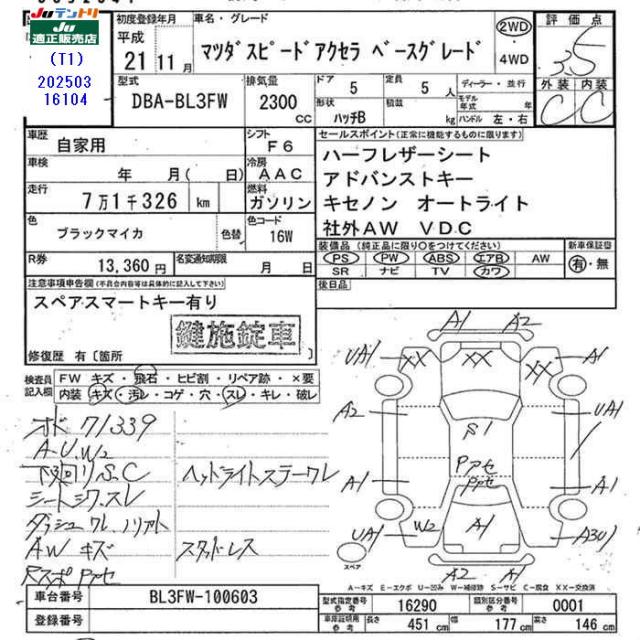 JUテントリ
Ju 適正販売店
(T1)
202503
16104
初度登録年月
平成
21 11月
車名・グレード
マツダスピードアクセラ ベースグレード
2WD
・
4WD
評価点
3.5
外装 内装
C C
型式
DBA-BL3FW
排気量
2300 CC
ドア 5
定員 5人
形状 ハッチB
積載 kg
ディーラー・並行
モデル年式 年
ハンドル 左・右
車歴 自家用
シフト F6
車検 年 月( 日)
冷房 AAC
走行 7万1千326 km
燃料 ガソリン
色 ブラックマイカ
色替
色コード 16W
R券 13,360円
名変通知期限 月 日
セールスポイント(正常に機能するものに限ります)
ハーフレザーシート
アドバンストキー
キセノン オートライト
社外AW VDC
装備品(純正品に限り○をつけてください)
PS PW ABS エアB AW
SR ナビ TV カワ
新車保証書
有・無
後日品
注意事項申告欄(不具合内容等は具体的に記入して下さい)
スペアスマートキー有り
鍵施錠車
修復歴 有〔箇所
検査員記入欄
FW キズ・飛石・ヒビ割・リペア跡・×要
内装 キズ・汚レ・コゲ・穴・スレ・キレ・破レ
オド 71339
A-U.W2
下回りS.C
ヘッドライトステークレ
シートシワ.スレ
ダッシュ ワレ.ノリアト
AW キズ
スタッドレス
Rスポ Pアセ
A1 A2
UA1 XX XX XX A1
A2 S1 UA1
Pアセ
Pアセ
A1 A1 A1
UA1 W2 A3U
A2 A1
スペア
A-キズ E-エクボ U-凹み W-補修跡 S-サビ C-腐食 XX-交換済
車台番号 BL3FW-100603
登録番号
型式指定番号 参考 16290
類別区分番号 参考 0001
車庫証明用 参考 長さ 451 cm 幅 177 cm 高さ 146 cm